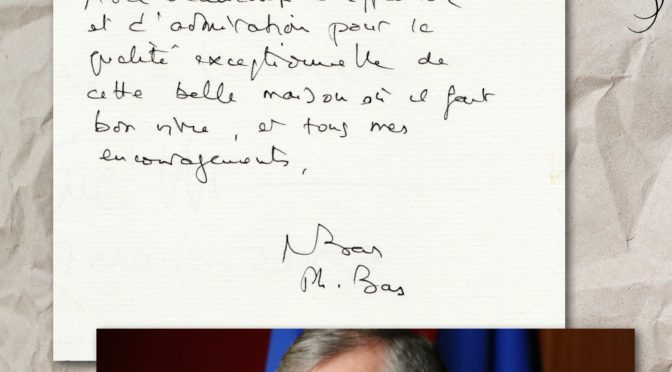 Avec beaucoup
et d'admiration pour la
qualité exceptionnelle de
cette belle maison où il fait
bon vivre, et tous mes
encouragements,
Ph. Bas